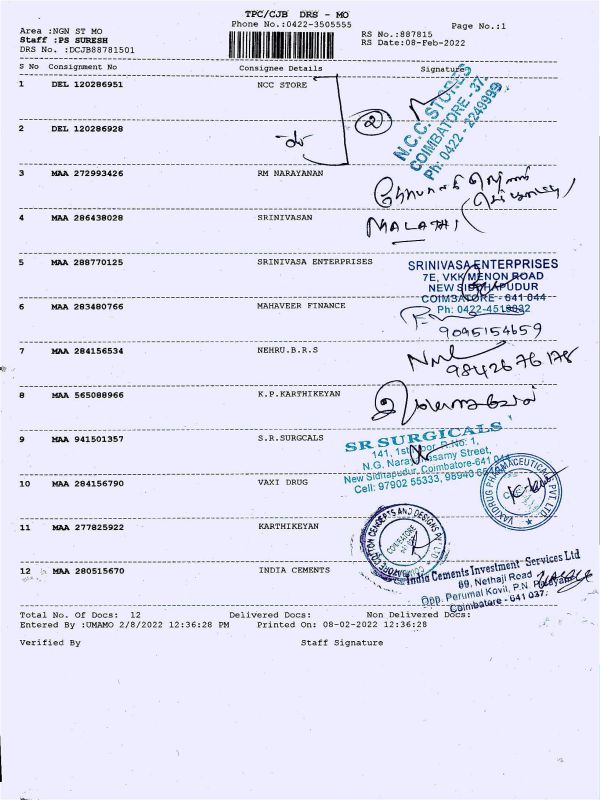 TPC/CJB DRS - MO
Phone No.:0422-3505555
Page No.:1
Area :NGN ST MO
Staff :PS SURESH
DRS No. :DCJB88781501
RS No.:887815
RS Date:08-Feb-2022
S No Consignment No Consignee Details Signature
1 DEL 120286951 NCC STORE
N.C.C. STORES
COIMBATORE - 37.
Ph: 0422 - 2249999
2
2 DEL 120286928
3 MAA 272993426 RM NARAYANAN
4 MAA 286438028 SRINIVASAN
MALATHI
5 MAA 288770125 SRINIVASA ENTERPRISES
SRINIVASA ENTERPRISES
7E, VKK MENON ROAD
NEW SIDHAPUDUR
COIMBATORE - 641 044
Ph: 0422-4518632
6 MAA 283480766 MAHAVEER FINANCE
9095154659
7 MAA 284156534 NEHRU.B.R.S
9842676178
8 MAA 565088966 K.P.KARTHIKEYAN
9 MAA 941501357 S.R.SURGCALS
SR SURGICALS
141, 1st Floor, R.No: 1,
N.G. Narayanasamy Street,
New Sidhapudur, Coimbatore-641 044
Cell: 97902 55333, 98940
10 MAA 284156790 VAXI DRUG
VAXIDRUG PHARMACEUTICALS PVT. LTD.
11 MAA 277825922 KARTHIKEYAN
COIMBATORE
12 MAA 280515670 INDIA CEMENTS
India Cements Investment Services Ltd
89, Nethaji Road
Opp. Perumal Kovil, P.N. Palayam
Coimbatore - 641 037.
Total No. Of Docs: 12 Delivered Docs: Non Delivered Docs:
Entered By :UMAMO 2/8/2022 12:36:28 PM Printed On: 08-02-2022 12:36:28
Verified By Staff Signature